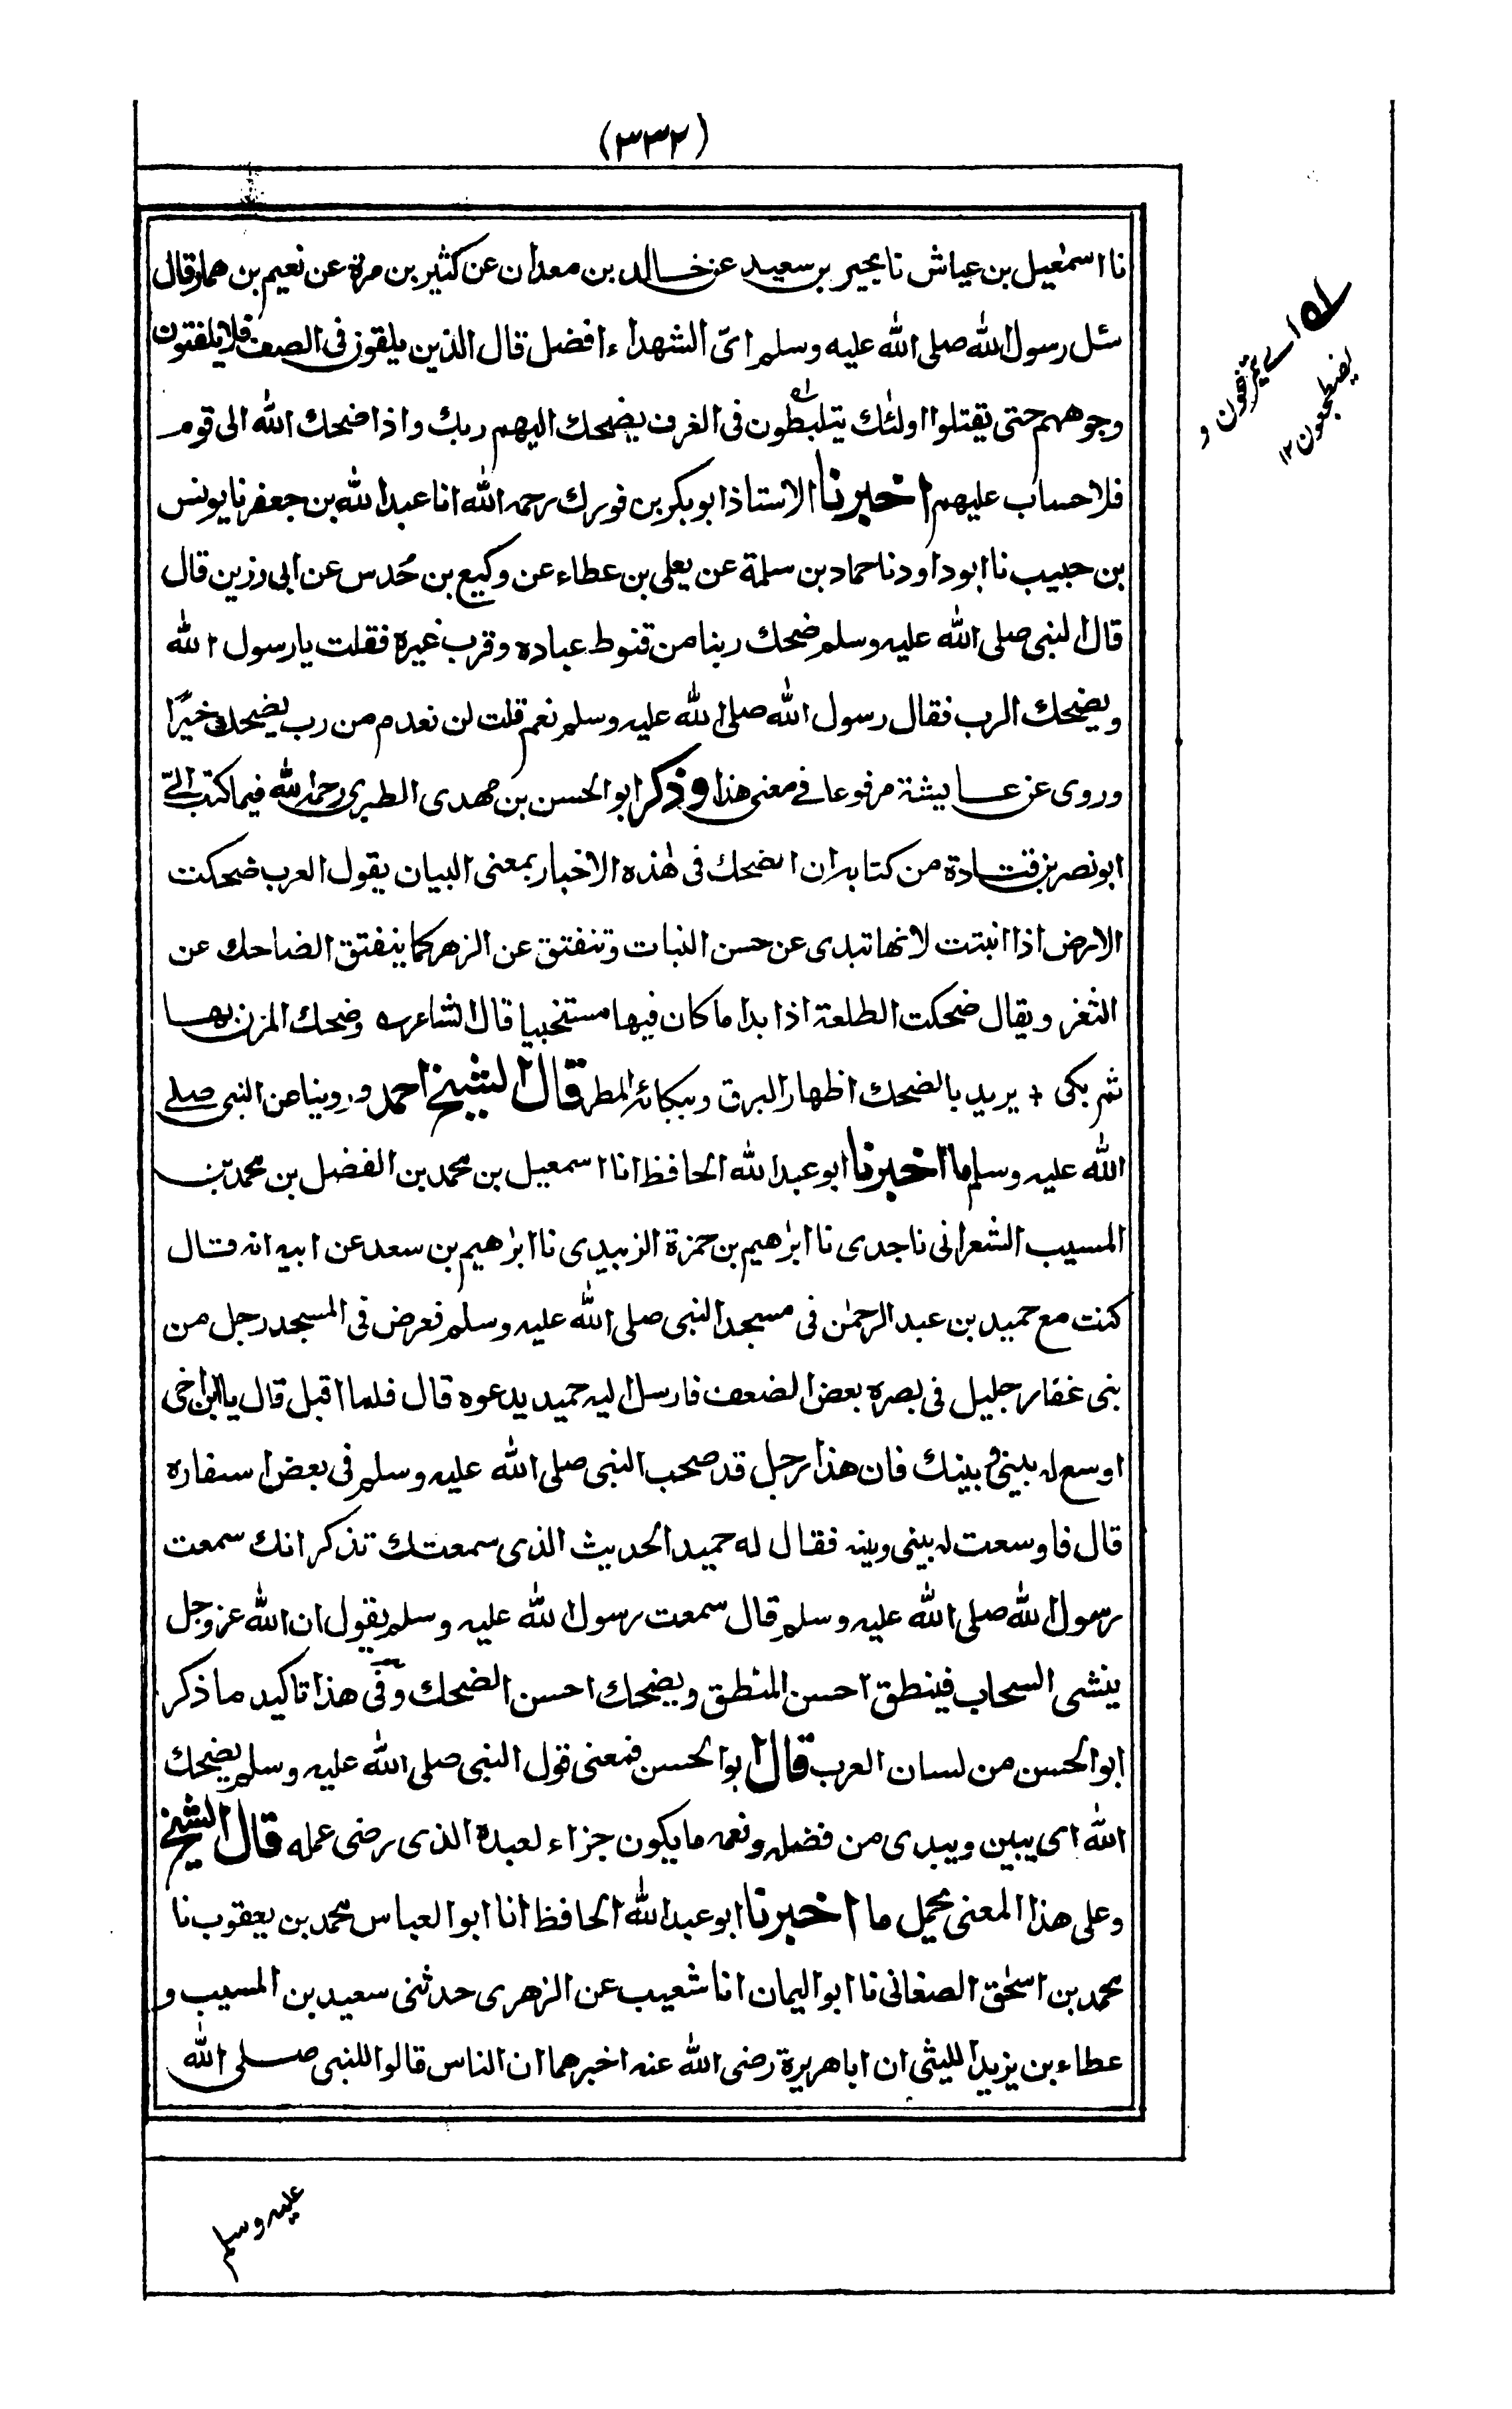 (٣٣٢)
نا اسمٰعيل بن عياش نا بحير بن سعيد عن خالد بن معدان عن كثير بن مرة عن نعيم بن همار قال
سئل رسول الله صلى الله عليه وسلم اىّ الشهداء افضل قال الذين يلقون فى الصف فلا يلفتون
وجوههم حتى يقتلوا اولئك يتلبطون فى الغرف يضحك اليهم ربك واذا ضحك الله الى قوم
فلا حساب عليهم اخبرنا الاستاذ ابو بكر بن فورك رحمه الله انا عبد الله بن جعفر نا يونس
بن حبيب نا ابو داود نا حماد بن سلمة عن يعلى بن عطاء عن وكيع بن حُدس عن ابى رزين قال
قال النبى صلى الله عليه وسلم ضحك ربنا من قنوط عباده وقرب غيره فقلت يا رسول الله
ويضحك الرب فقال رسول الله صلى الله عليه وسلم نعم قلت لن نعدم من رب يضحك خيرًا
وروى عن عايشة مرفوعا فى معنى هذا وذكر ابو الحسن بن مهدى الطبرى رحمه الله فيما كتب الىّ
ابو نصر بن قتادة من كتابه ان الضحك فى هٰذه الاخبار بمعنى البيان يقول العرب ضحكت
الارض اذا انبتت لانها تبدى عن حسن النبات وتنفتق عن الزهر كما ينفتق الضاحك عن
الثغر ويقال ضحكت الطلعة اذا بدا ما كان فيها مستخبيا قال الشاعر ؎ وضحك المزن بها
ثم بكى + يريد بالضحك اظهار البرق وببكائه المطر قال الشيخ احمد وروينا عن النبى صلى
الله عليه وسلم ما اخبرنا ابو عبد الله الحافظ انا اسمعيل بن محمد بن الفضل بن محمد بن
المسيب الشعرانى نا جدى نا ابرٰهيم بن حمزة الزبيدى نا ابرٰهيم بن سعد عن ابيه انه قال
كنت مع حميد بن عبد الرحمٰن فى مسجد النبى صلى الله عليه وسلم فعرض فى المسجد رجل من
بنى غفار جليل فى بصره بعض الضعف فارسل اليه حميد يدعوه قال فلما اقبل قال يا ابن اخى
اوسع له بينى وبينك فان هذا رجل قد صحب النبى صلى الله عليه وسلم فى بعض اسفاره
قال فاوسعت له بينى وبينه فقال له حميد الحديث الذى سمعتك تذكر انك سمعت
رسول الله صلى الله عليه وسلم قال سمعت رسول الله عليه وسلم يقول ان الله عز وجل
ينشى السحاب فينطق احسن المنطق ويضحك احسن الضحك وفى هذا تاكيد ما ذكر
ابو الحسن من لسان العرب قال ابو الحسن فمعنى قول النبى صلى الله عليه وسلم يضحك
الله اى يبين ويبدى من فضله ونعمه ما يكون جزاء لعبده الذى رضى عمله قال الشيخ
وعلى هذا المعنى يحمل ما اخبرنا ابو عبد الله الحافظ انا ابو العباس محمد بن يعقوب نا
محمد بن اسحٰق الصغانى نا ابو اليمان انا شعيب عن الزهرى حدثنى سعيد بن المسيب و
عطاء بن يزيد الليثى ان ابا هريرة رضى الله عنه اخبرهما ان الناس قالوا للنبى صلى الله
عليه وسلم
له اے يتمرغون و
يضطجعون ١٢